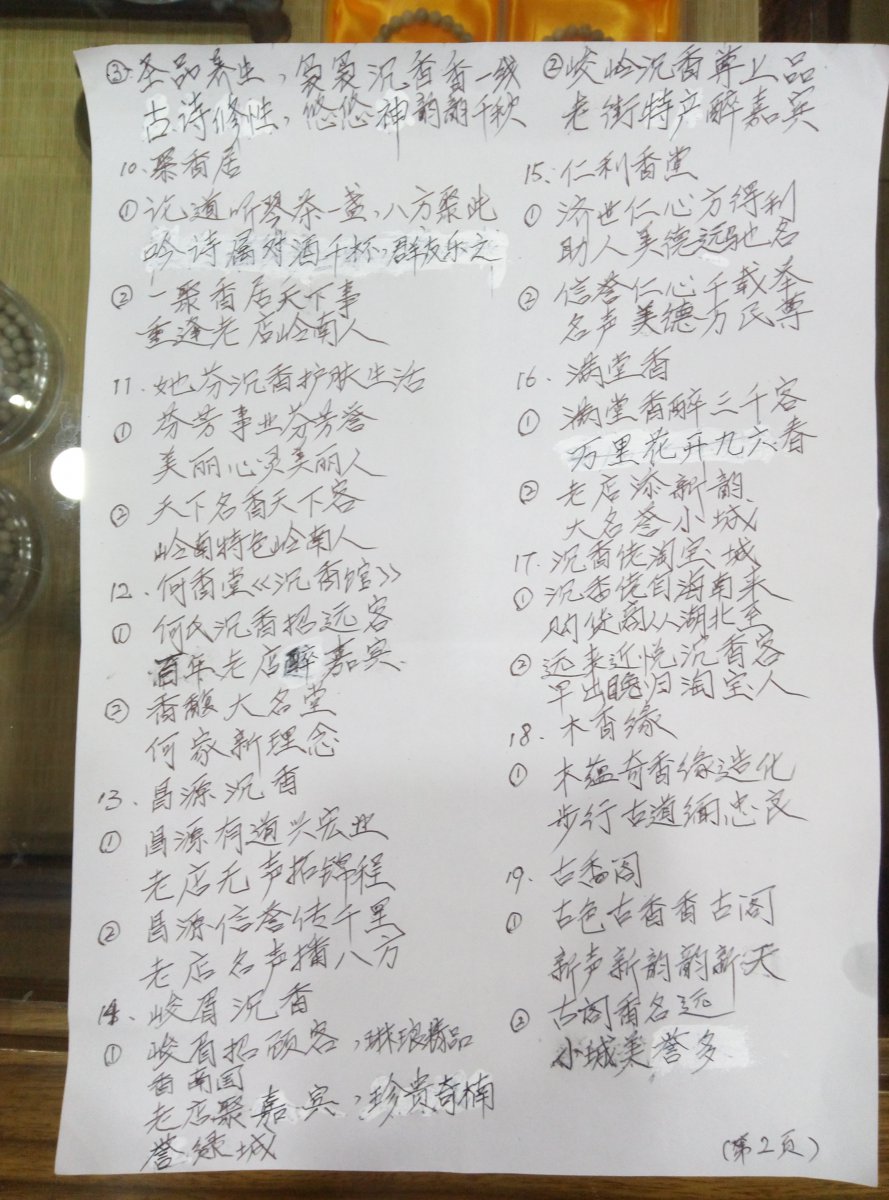 ③圣品养生，袅袅沉香香一线
古诗修性，悠悠神韵韵千秋
10、聚香居
①论道听琴茶一盏，八方聚此
吟诗属对酒千杯，群友乐之
②一聚香居天下事
重逢老店岭南人
11、她芬沉香护肤生活
①芬芳事业芬芳誉
美丽心灵美丽人
②天下名香天下客
岭南特色岭南人
12、何香堂《沉香馆》
①何氏沉香招远客
百年老店醉嘉宾
②香馥大名堂
何家新理念
13、昌源沉香
①昌源有道兴宏业
老店无声拓锦程
②昌源信誉传千里
老店名声播八方
14、峻眉沉香
①峻眉招顾客，琳琅精品
香南国
老店聚嘉宾，珍贵奇楠
誉绿城
②峻岭沉香尊上品
老街特产醉嘉宾
15、仁利香堂
①济世仁心方得利
助人美德远驰名
②信誉仁心千载圣
名声美德万民尊
16、满堂香
①满堂香醉三千客
万里花开九六春
②老店添新韵
大名誉小城
17、沉香佬淘宝城
①沉香佬自海南来
购货商从湖北至
②远来近悦沉香客
早出晚归淘宝人
18、木香缘
①木蕴奇香缘造化
步行古道缅忠良
19、古香阁
①古色古香香古阁
新声新韵韵新天
②古阁香名远
小城美誉多
（第2页）